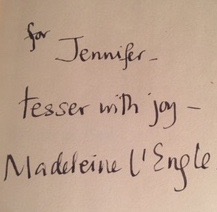 for Jennifer –
tesser with joy –
Madeleine L'Engle